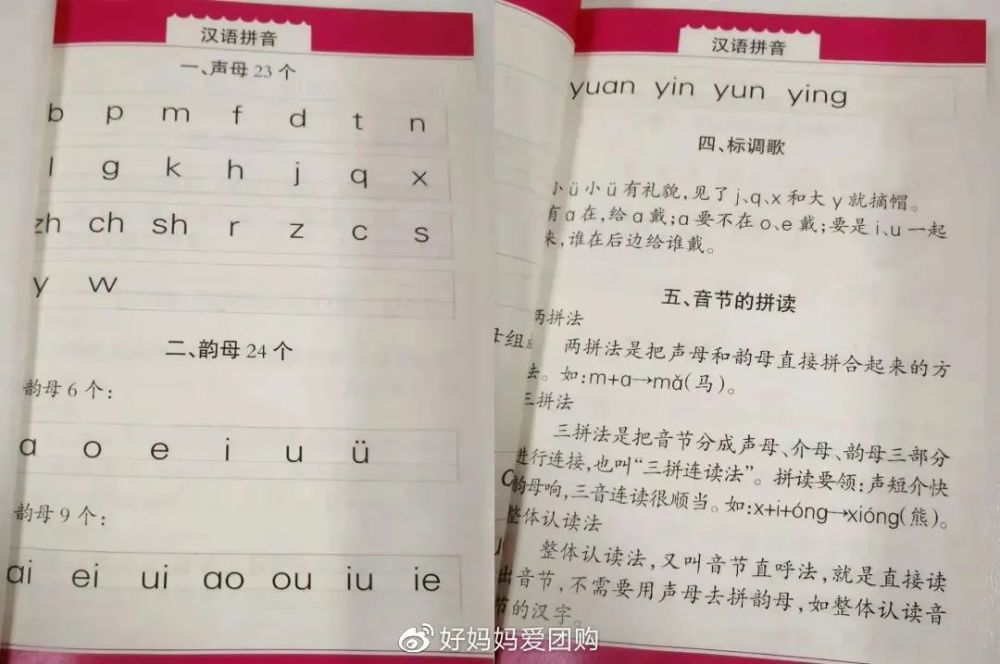 汉语拼音
一、声母 23 个
b p m f d t n
l g k h j q x
zh ch sh r z c s
y w
二、韵母 24 个
韵母 6 个：
a o e i u ü
韵母 9 个：
ai ei ui ao ou iu ie
汉语拼音
yuan yin yun ying
四、标调歌
小 ü 小 ü 有礼貌，见了 j、q、x 和大 y 就摘帽。
有 a 在，给 a 戴；a 要不在 o、e 戴；要是 i、u 一起
来，谁在后边给谁戴。
五、音节的拼读
两拼法
两拼法是把声母和韵母直接拼合起来的方
法。如：m+a→mǎ(马)。
三拼法
三拼法是把音节分成声母、介母、韵母三部分
进行连接，也叫“三拼连读法”。拼读要领：声短介快
韵母响，三音连读很顺当。如：x+i+óng→xióng(熊)。
整体认读法
整体认读法，又叫音节直呼法，就是直接读
出音节，不需要用声母去拼韵母，如整体认读音
节的汉字。
好妈妈爱团购